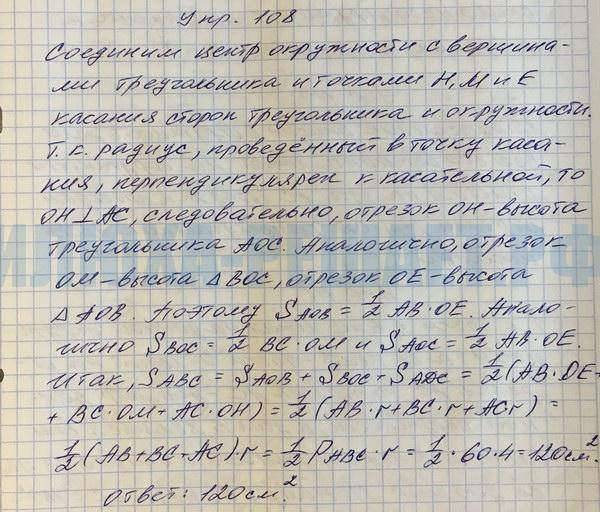 Упр. 108
Соединим центр окружности с вершина-
ми треугольника и точками H, M и E
касания сторон треугольника и окружности.
Т. к. радиус, проведённый в точку каса-
ния, перпендикулярен к касательной, то
OH⊥AC, следовательно, отрезок OH - высота
треугольника AOC. Аналогично, отрезок
OM - высота △BOC, отрезок OE - высота
△AOB. Поэтому S_AOB = 1/2 AB·OE. Анало-
гично S_BOC = 1/2 BC·OM и S_AOC = 1/2 AB·OE.
Итак, S_ABC = S_AOB + S_BOC + S_AOC = 1/2 (AB·OE+
+ BC·OM + AC·OH) = 1/2 (AB·r+BC·r+AC·r) =
1/2 (AB+BC+AC)·r = 1/2 P_ABC·r = 1/2·60·4=120см².
Ответ: 120см².